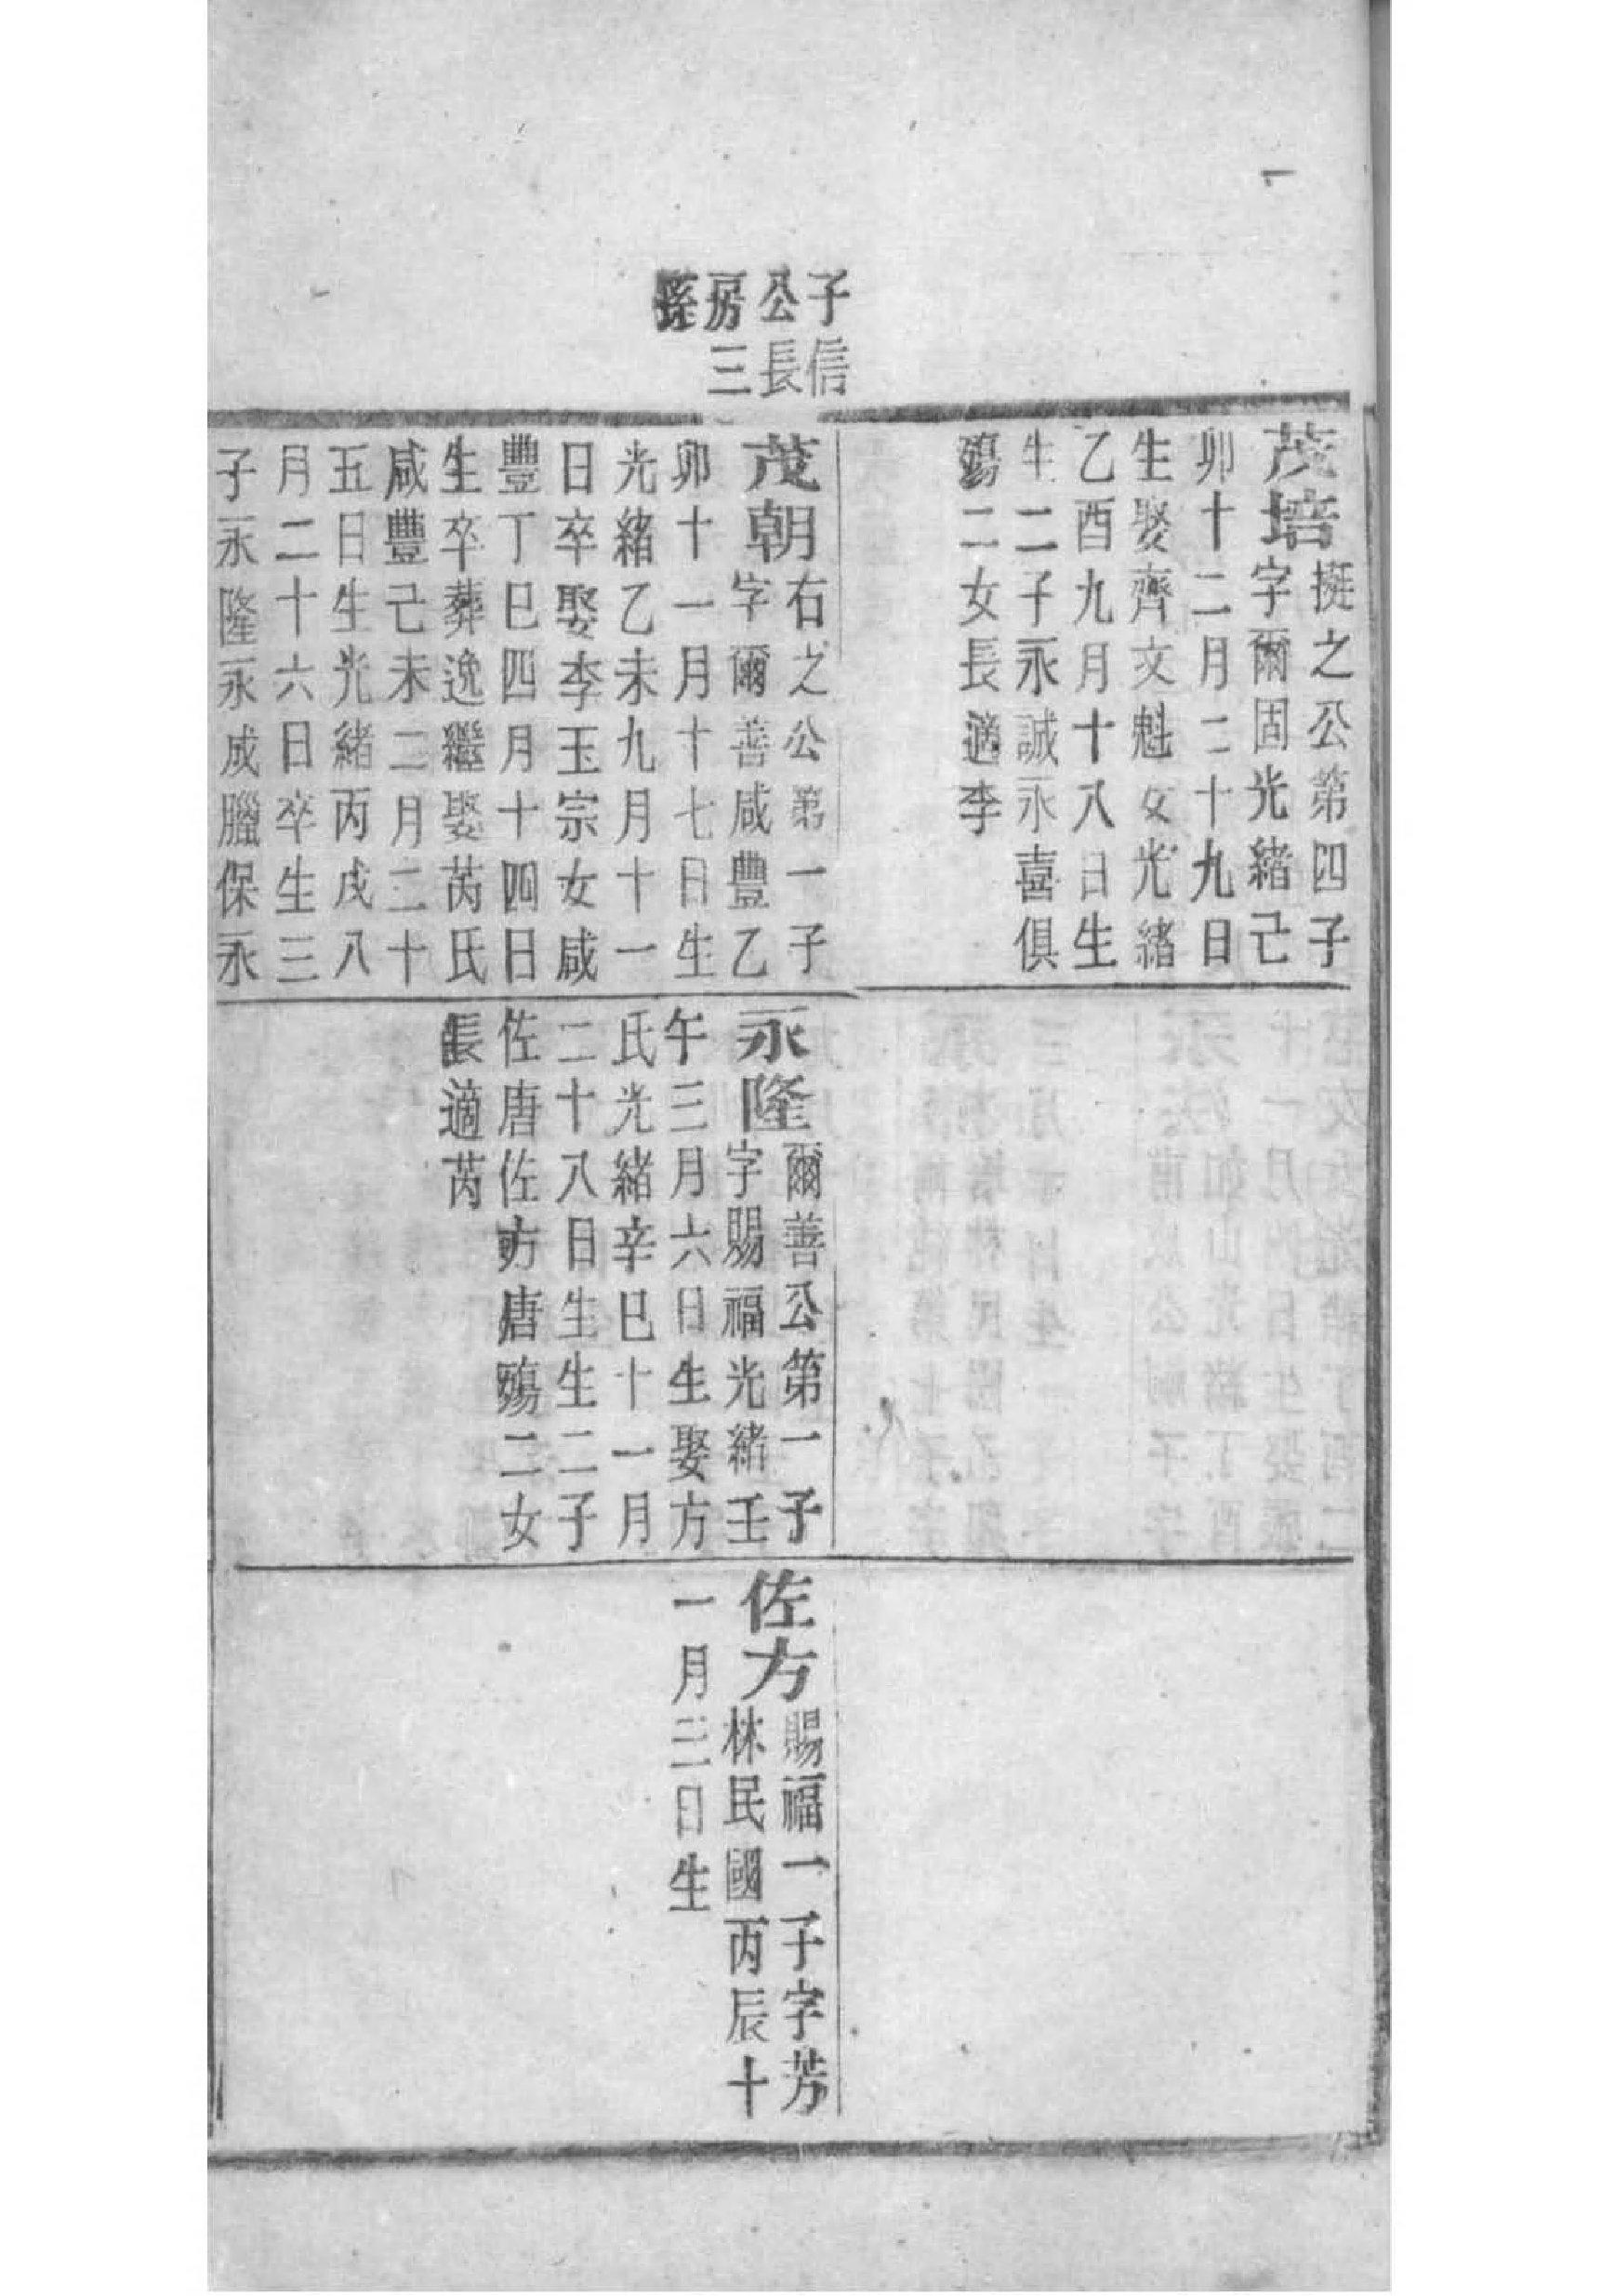 子信
公長
房三
孫
茂培
挺之公第四子
字爾固光緒己
卯十二月二十九日
生娶齊文魁女光緒
乙酉九月十八日生
生二子永誠永喜俱
殤二女長適李
茂朝
右之公第一子
字爾善咸豐乙
卯十一月十七日生
光緒乙未九月十一
日卒娶李玉宗女咸
豐丁巳四月十四日
生卒葬逸繼娶芮氏
咸豐己未二月二十
五日生光緒丙戌八
月二十六日卒生三
子永隆永成臘保永
永隆
爾善公第一子
字賜福光緒壬
午三月六日生娶方
氏光緒辛巳十一月
二十八日生生二子
佐唐佐方唐殤二女
長適芮
佐方
賜福一子字芳
林民國丙辰十
一月三日生